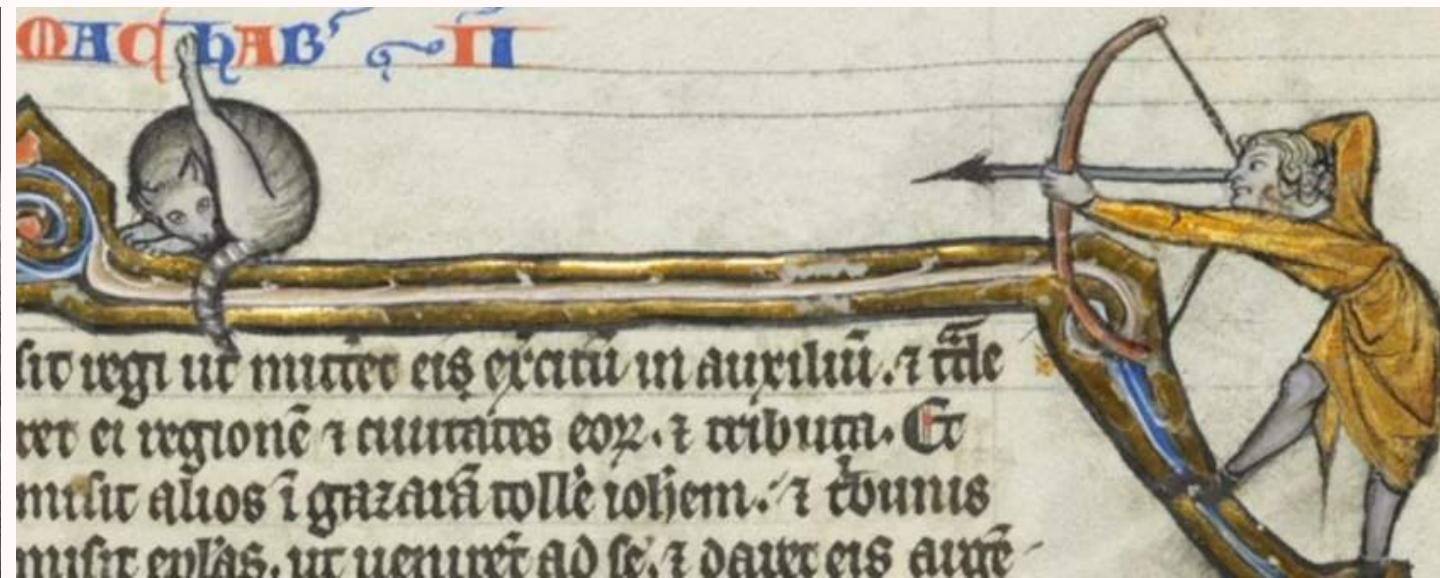 MACHAB' II
sit regi ut mittet eis exˈcitū in auxiliū . ⁊ tᷓde
ret ei regionē ⁊ ciuitates eoꝝ . ⁊ tributa . Et
misit alios ī gazarā tollˈe iohˈem . ⁊ tˈbunis
misit epl̓as . ut uenirēt ad se . ⁊ daret eis argē